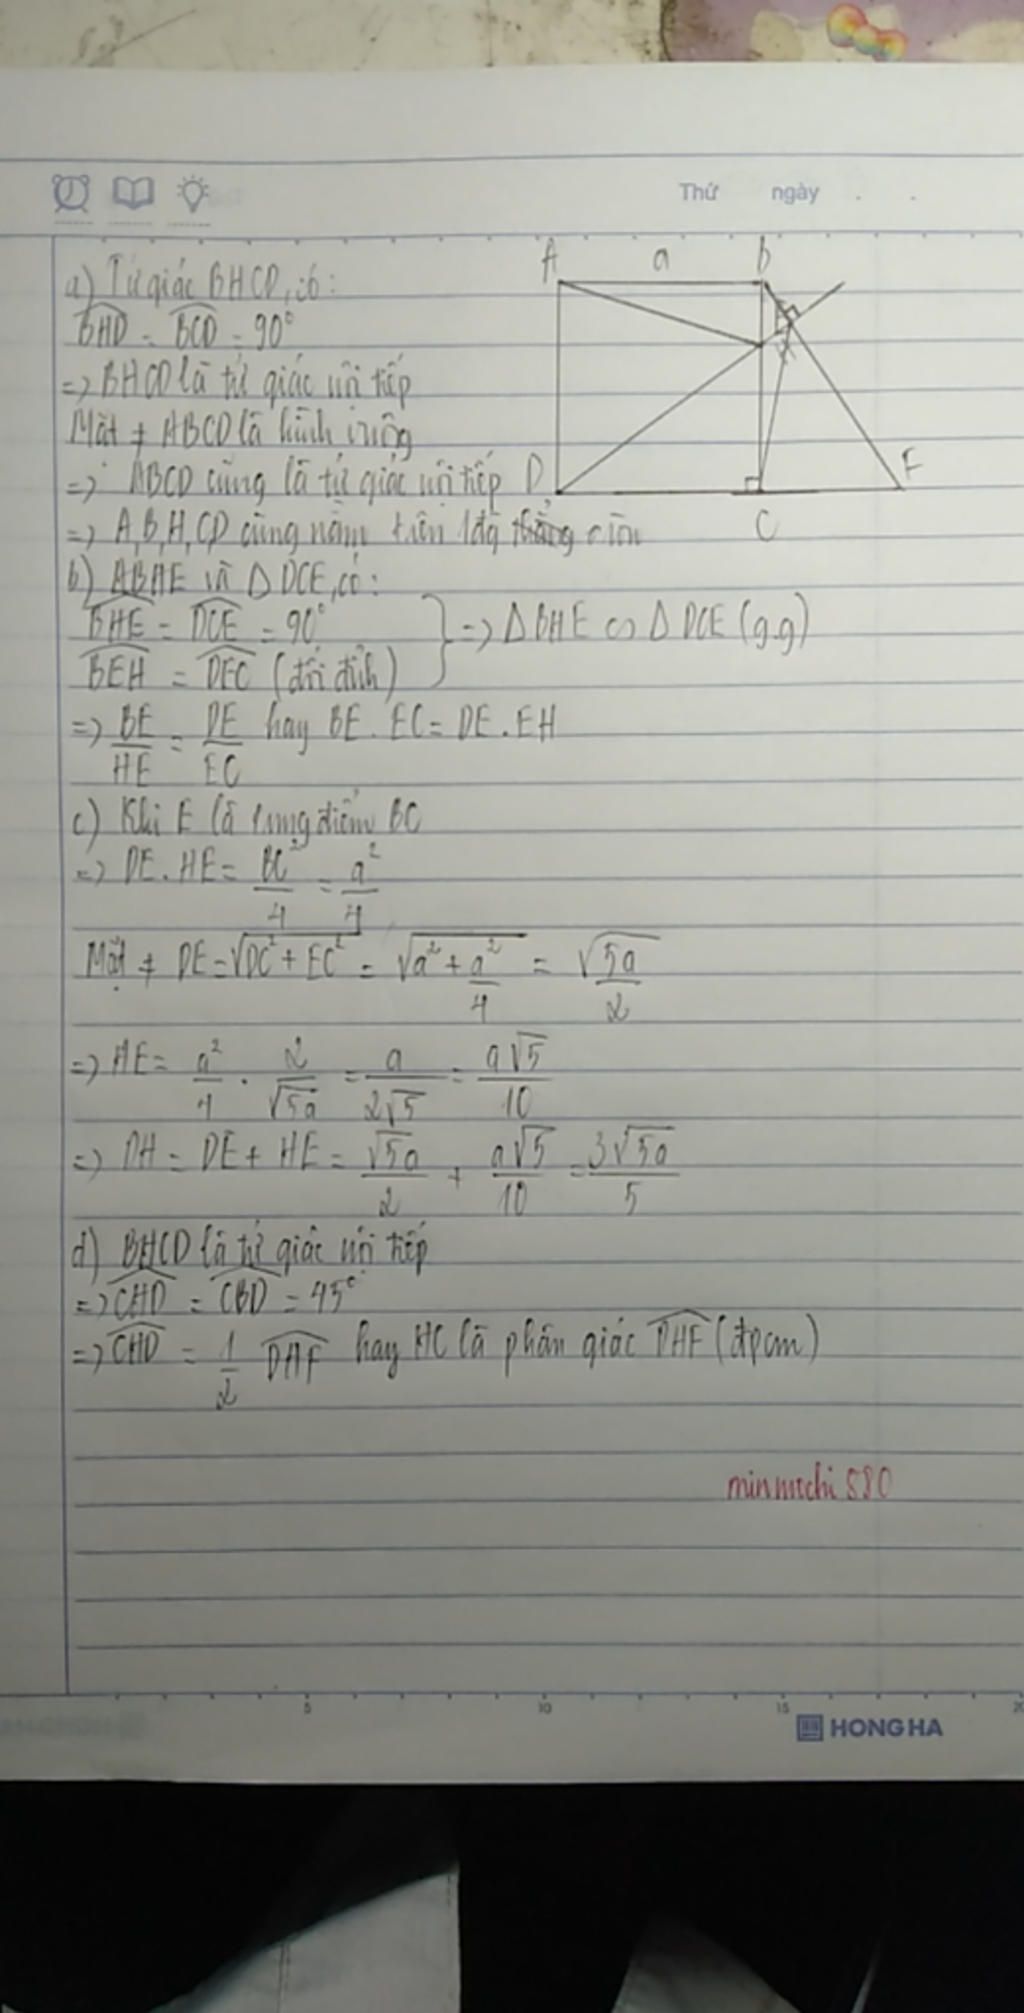 Thứ ngày . .
a) Tứ giác BHCD, có:
BHD = BCD = 90°
=> BHCD là tứ giác nội tiếp
Mặt ≠ ABCD là hình vuông
=> ABCD cũng là tứ giác nội tiếp
=> A, B, H, C, D cùng nằm trên 1 đg thẳng tròn
A a B
H
E
D C F
b) ΔBHE và Δ DCE, có:
BHE = DCE = 90°
BEH = DEC (đối đỉnh)
=> Δ BHE ∽ Δ DCE (g.g)
=> BE/HE = DE/EC hay BE . EC = DE . EH
c) Khi E là trung điểm BC
=> DE . HE = BC²/4 = a²/4
Mặt ≠ DE = √DC² + EC² = √a² + a²/4 = √5a/2
=> HE = a²/4 . 2/√5a = a/2√5 = a√5/10
=> DH = DE + HE = √5a/2 + a√5/10 = 3√5a/5
d) BHCD là tứ giác nội tiếp
=> CHD = CBD = 45°
=> CHD = 1/2 DHF hay HC là phân giác DHF (đpcm)
minmochi 880
5 10 15 20
HONG HA